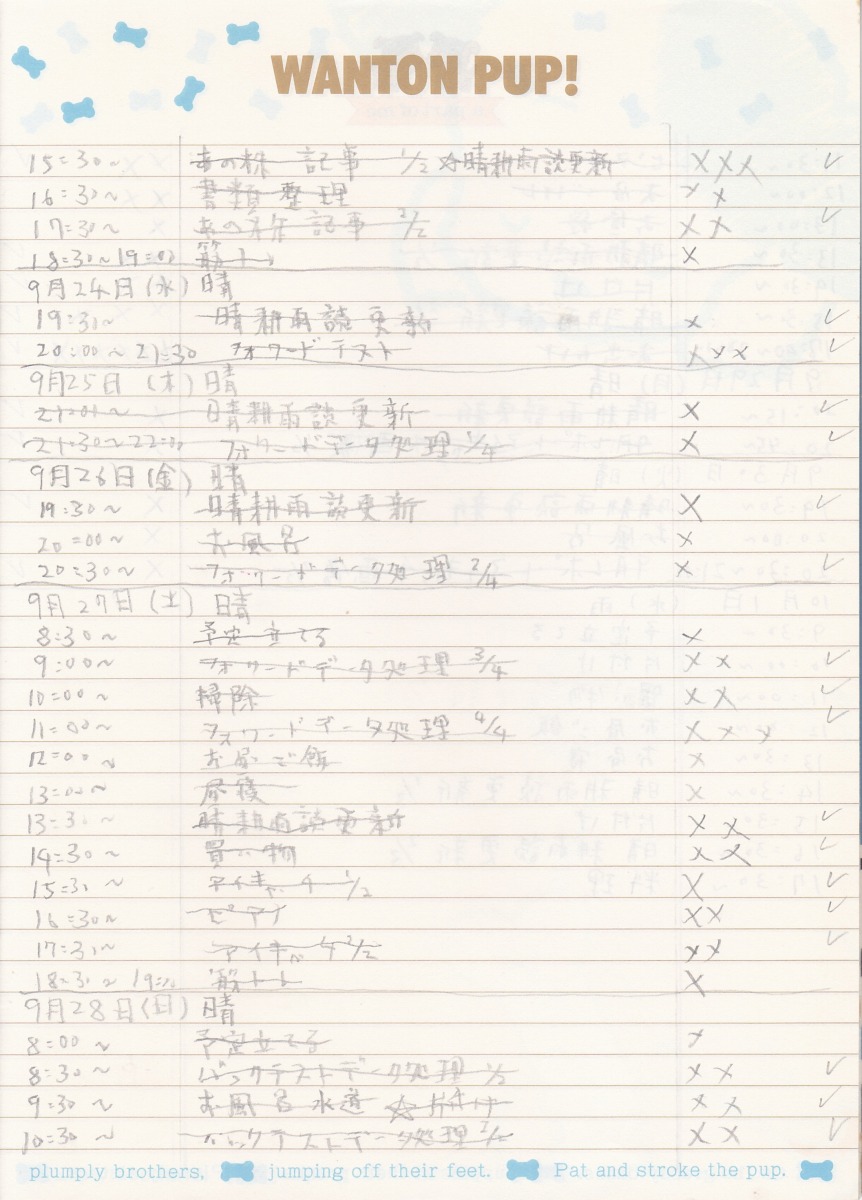 WANTON PUP!
15:30~ あの株 記事 1/2 ☆晴耕雨読更新 ××× ✓
16:30~ 書類整理 ××
17:30~ あの 記事 2/2 ×× ✓
18:30~19:00 筋トレ ×
9月24日(水) 晴
19:30~ 晴耕雨読更新 × ✓
20:00~21:30 フォワードテスト ××× ✓
9月25日(木) 晴
21:01~ 晴耕雨読更新 × ✓
21:30~22:00 フォワードデータ処理 1/4 × ✓
9月26日(金) 晴
19:30~ 晴耕雨読更新 × ✓
20:00~ お風呂 ×
20:30~ フォワードデータ処理 2/4 × ✓
9月27日(土) 晴
8:30~ 予定立てる ×
9:00~ フォワードデータ処理 3/4 ×× ✓
10:00~ 掃除 ×× ✓
11:00~ フォワードデータ処理 4/4 ××× ✓
12:00~ お昼ご飯 ×
13:00~ 昼寝 ×
13:30~ 晴耕雨読更新 ×× ✓
14:30~ 買い物 ×× ✓
15:30~ 1/2 × ✓
16:30~ ピアノ ×× ✓
17:30~ 2/2 ×× ✓
18:30~19:00 筋トレ ×
9月28日(日) 晴
8:00~ 予定立てる ×
8:30~ バックテストデータ処理 1/2 ×× ✓
9:30~ お風呂水道 ☆片付け ×× ✓
10:30~ バックテストデータ処理 2/2 ×× ✓
plumply brothers, jumping off their feet. Pat and stroke the pup.